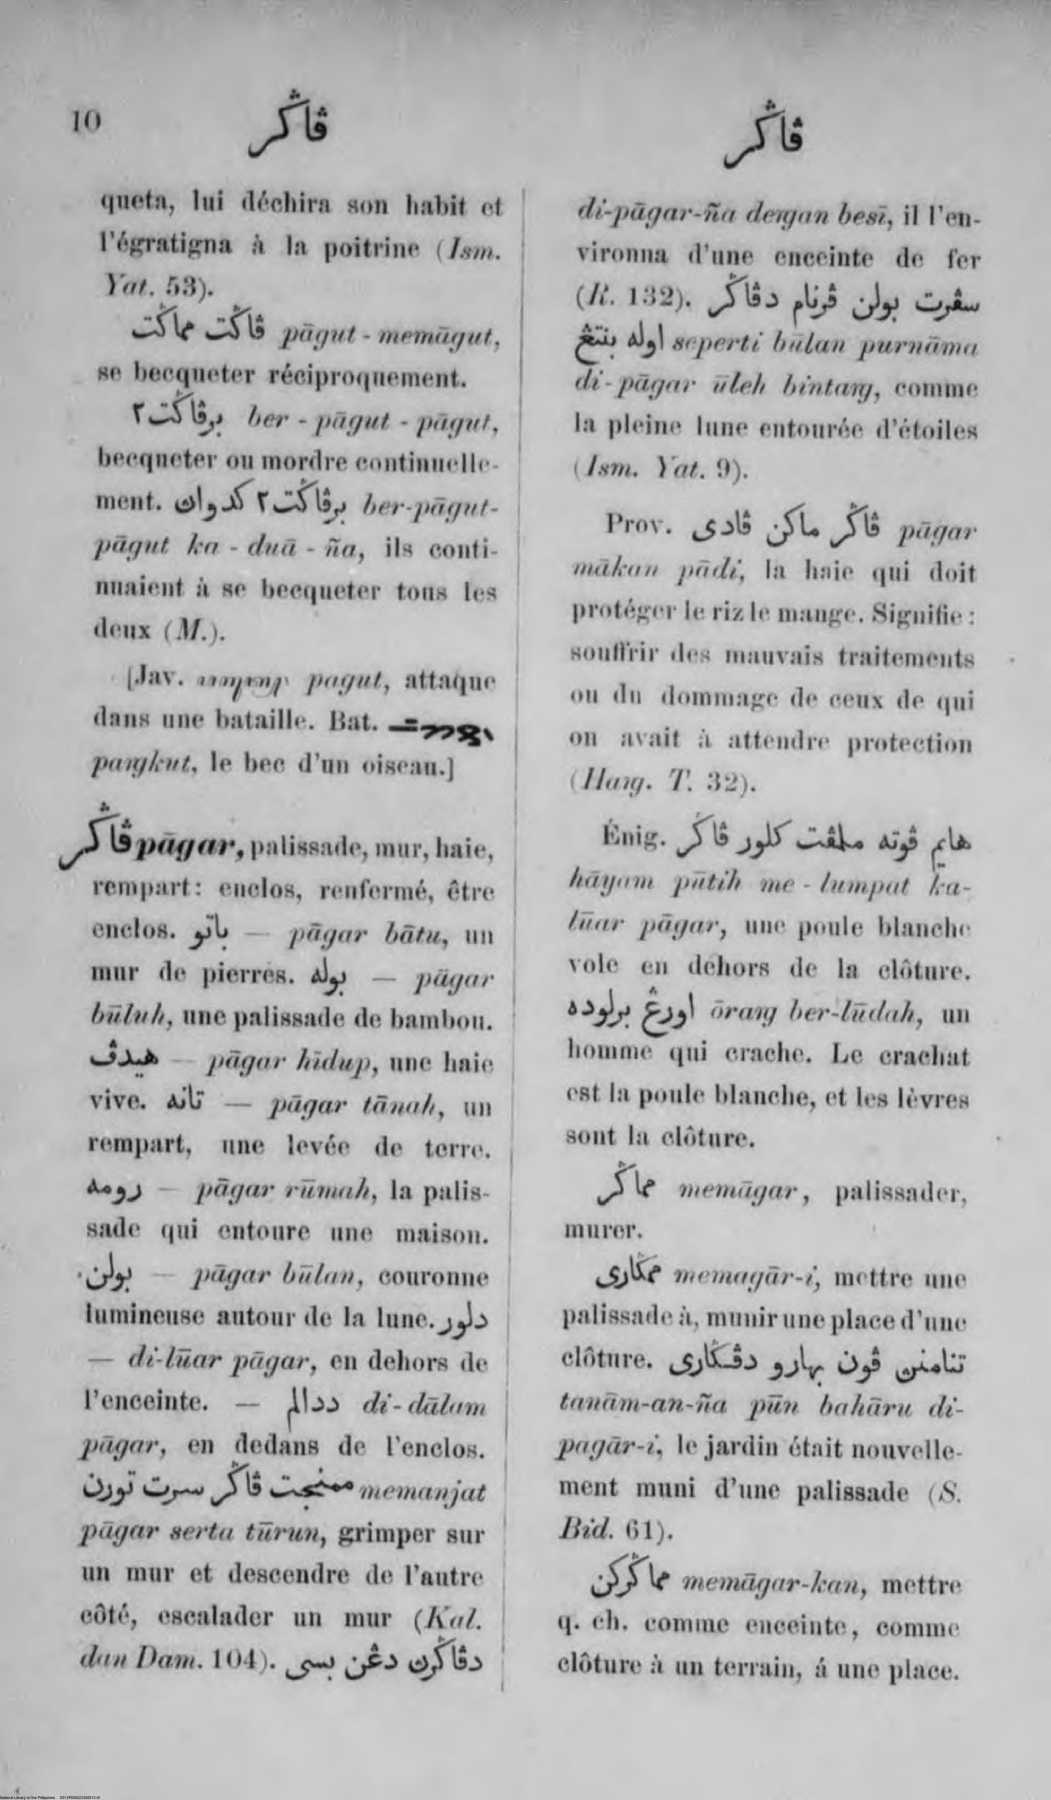 10
ڤاڬر
ڤاڬر
queta, lui déchira son habit et
l'égratigna à la poitrine (Ism.
Yat. 53).
ڤاڬت مماڬت pāgut - memāgut,
se becqueter réciproquement.
برڤاڬت٢ ber - pāgut - pāgut,
becqueter ou mordre continuelle-
ment. برڤاڬت٢ كدوان ber-pāgut-
pāgut ka - duā - ña, ils conti-
nuaient à se becqueter tous les
deux (M.).
[Jav. pagut, attaque
dans une bataille. Bat.
paṅkut, le bec d'un oiseau.]
ڤاڬر pāgar, palissade, mur, haie,
rempart: enclos, renfermé, être
enclos. باتو — pāgar bātu, un
mur de pierres. بوله — pāgar
būluh, une palissade de bambou.
هيدڤ — pāgar hīdup, une haie
vive. تانه — pāgar tānah, un
rempart, une levée de terre.
رومه — pāgar rūmah, la palis-
sade qui entoure une maison.
بولن — pāgar būlan, couronne
lumineuse autour de la lune. دلور
— di-lūar pāgar, en dehors de
l'enceinte. — ددالم di-dālam
pāgar, en dedans de l'enclos.
ممنجت ڤاڬر سرت تورن memanjat
pāgar serta tūrun, grimper sur
un mur et descendre de l'autre
côté, escalader un mur (Kal.
dan Dam. 104). دڤاڬرن دڠن بسى
di-pāgar-ña deṅgan besī, il l'en-
vironna d'une enceinte de fer
(R. 132). سڤرت بولن ڤرنام دڤاڬر
اوله بنتڠ seperti būlan purnāma
di-pāgar ūleh bintaṅg, comme
la pleine lune entourée d'étoiles
(Ism. Yat. 9).
Prov. ڤاڬر ماكن ڤادى pāgar
mākan pādi, la haie qui doit
protéger le riz le mange. Signifie:
souffrir des mauvais traitements
ou du dommage de ceux de qui
on avait à attendre protection
(Haṅg. T. 32).
Énig. هايم ڤوته ملمڤت كلور ڤاڬر
hāyam pūtih me - lumpat ka-
lūar pāgar, une poule blanche
vole en dehors de la clôture.
اورڠ برلوده ōraṅg ber-lūdah, un
homme qui crache. Le crachat
est la poule blanche, et les lèvres
sont la clôture.
مماڬر memāgar, palissader,
murer.
ممڬارى memagār-i, mettre une
palissade à, munir une place d'une
clôture. تنامنن ڤون بهارو دڤڬارى
tanām-an-ña pūn bahāru di-
pagār-i, le jardin était nouvelle-
ment muni d'une palissade (S.
Bid. 61).
مماڬركن memāgar-kan, mettre
q. ch. comme enceinte, comme
clôture à un terrain, á une place.